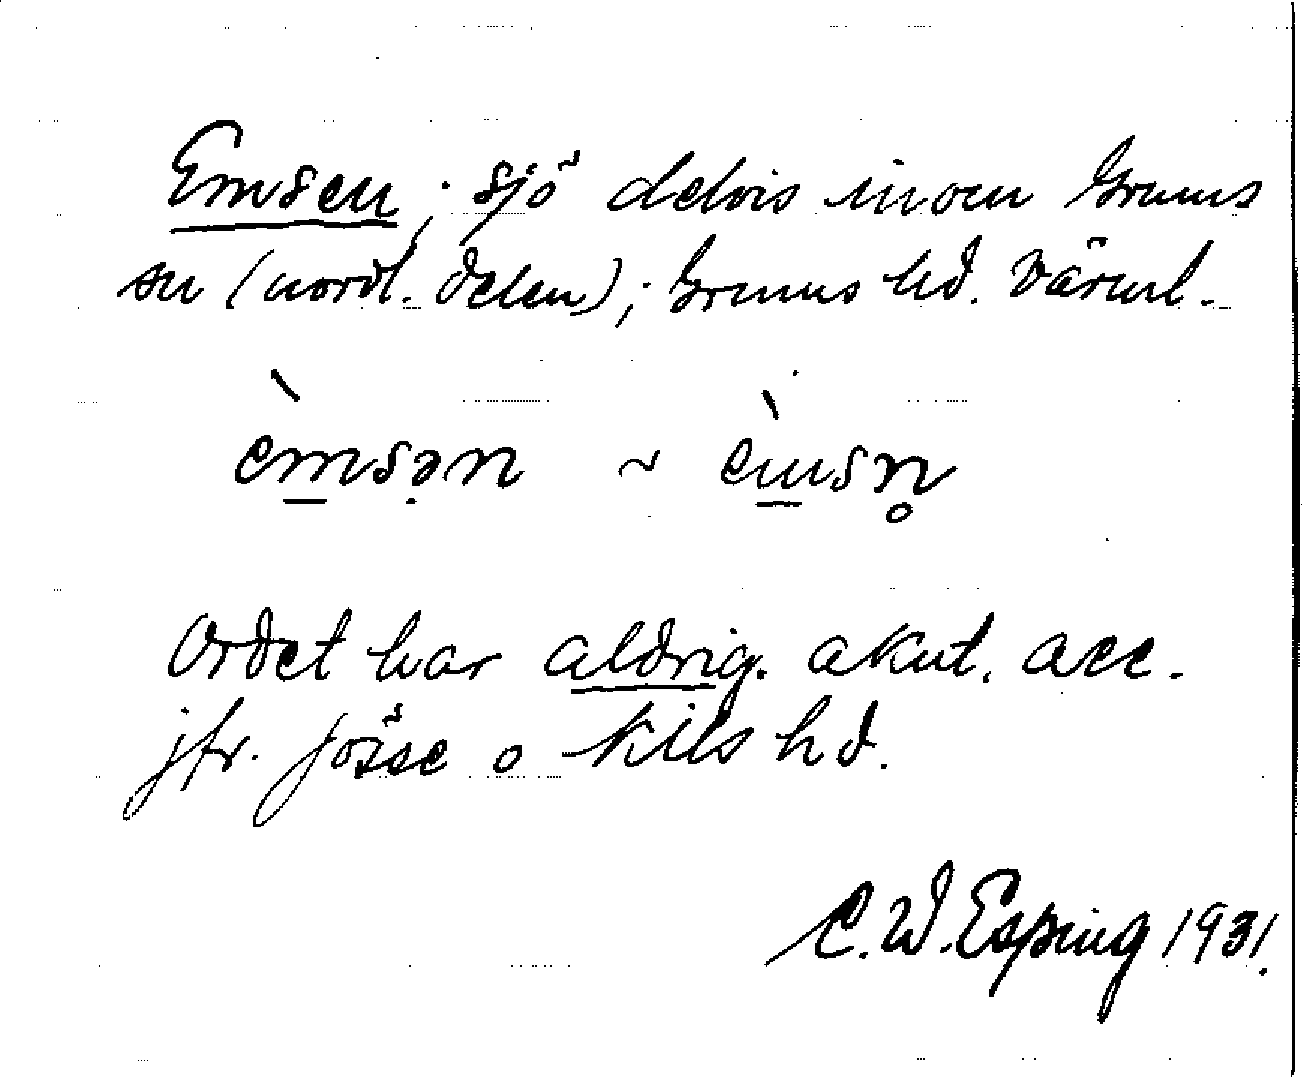 Emsen; sjö delvis inom Grums
sn (nordl. delen); Grums hd. Värml.
èm̲sə̣n ~ èm̲sn̥
Ordet har aldrig. akut. acc.
jfr. Jösse o Kils hd.
C. W. Esping 1931.